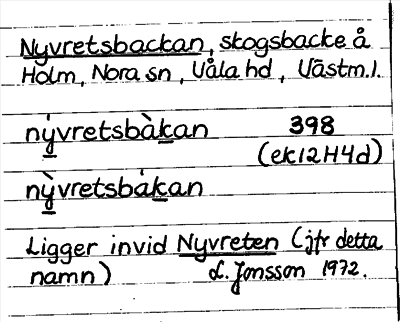 Nyvretsbackan, skogsbacke å
Holm, Nora sn, Våla hd, Västm.l.
ný̱vretsbàḵan 398
(ek12H4d)
nỳ̱vretsbáḵan
Ligger invid Nyvreten (jfr detta
namn) L. Jonsson 1972.